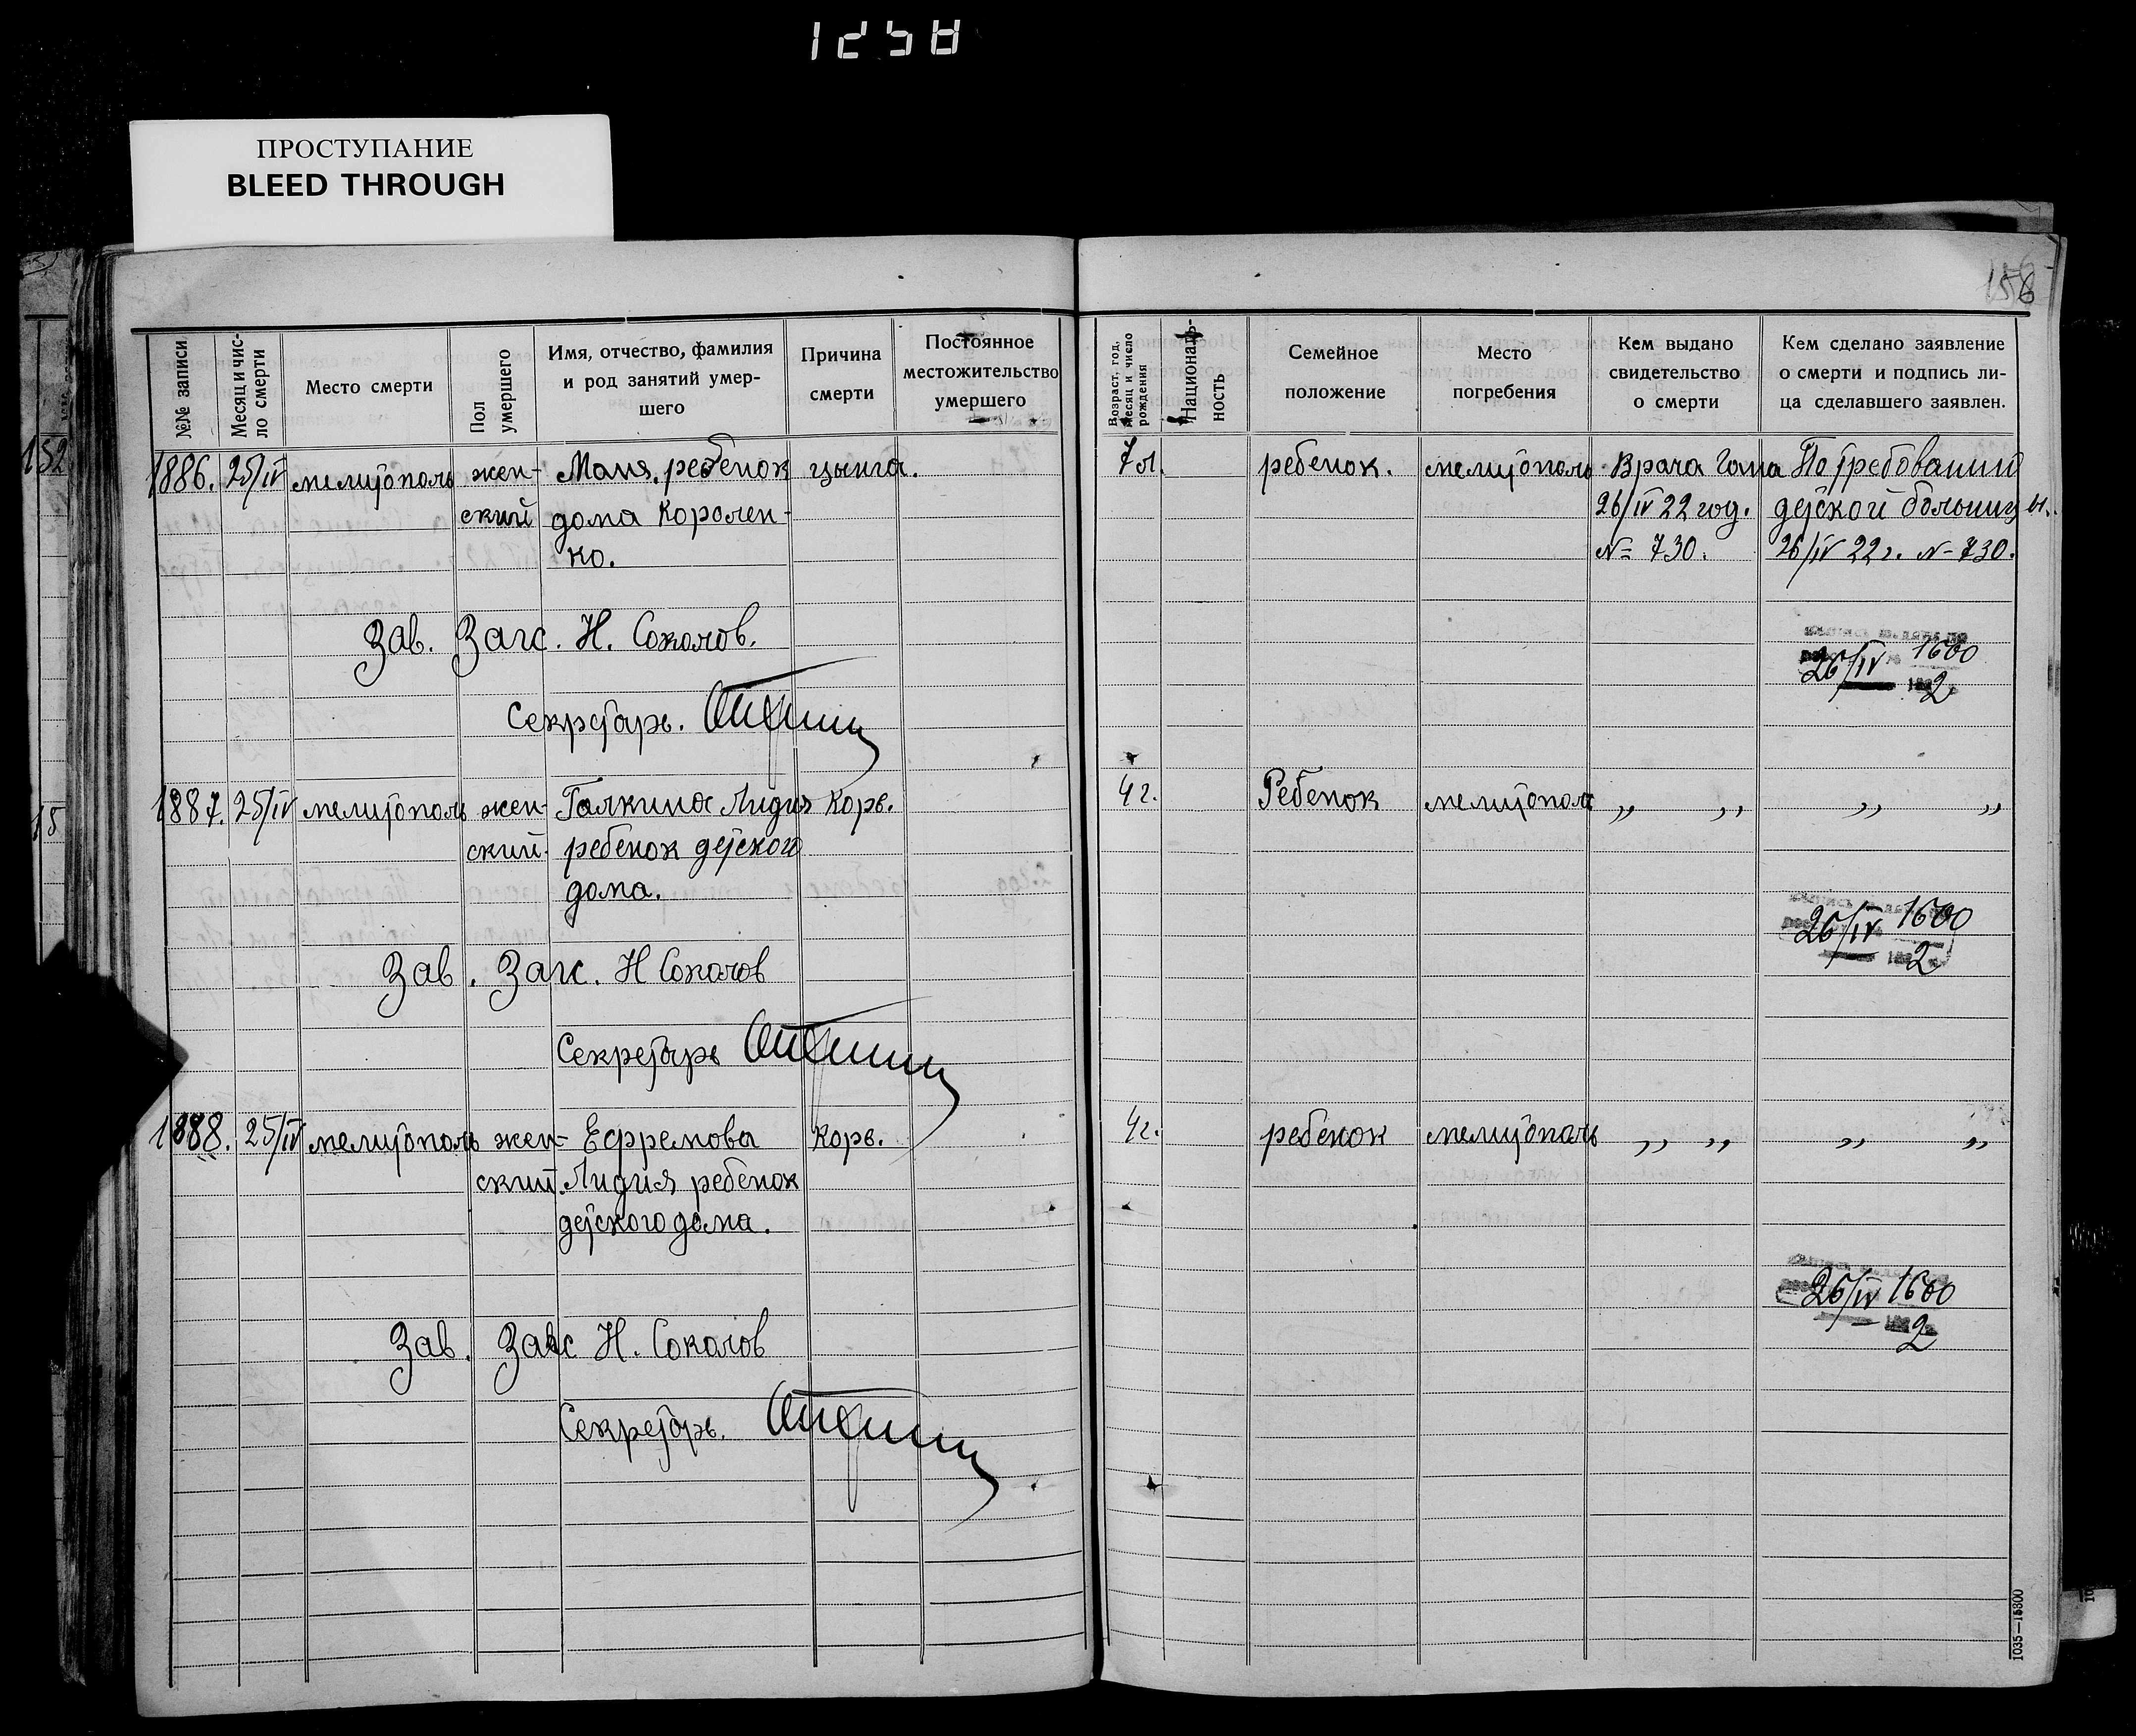 1258
ПРОСТУПАНИЕ
BLEED THROUGH
158
№№ записи
Месяц и чис-
ло смерти
Место смерти
Пол
умершего
Имя, отчество, фамилия
и род занятий умер-
шего
Причина
смерти
Постоянное
местожительство
умершего
Возраст, год,
месяц и число
рождения
Националь-
ность
Семейное
положение
Место
погребения
Кем выдано
свидетельство
о смерти
Кем сделано заявление
о смерти и подпись ли-
ца сделавшего заявлен.
152
1886. 25/IV мелитополь жен- Маня. ребенок цынга. 7 л. ребенок. мелитополь Врача По требований
ский дома Королен- 26/IV 22 год. детской больницы.
ко. № 730. 26/IV 22 г. № 730.
Зав. Загс. Н. Соколов. 26/IV 1600
2
Секретарь.
15
1887. 25/IV мелитополь жен- Галкина Лидия Корь. 4 г. Ребенок мелитополь „ „ „ „
ский. ребенок детского
дома.
26/IV 1600
Зав. Загс. Н Соколов 2
Секретарь
1888. 25/IV мелитополь жен- Ефремова Корь. 4 г. ребенок мелитополь „ „ „ „
ский. Лидия ребенок
детского дома.
26/IV 1600
Зав. Загс Н. Соколов 2
Секретарь.
1035—15300